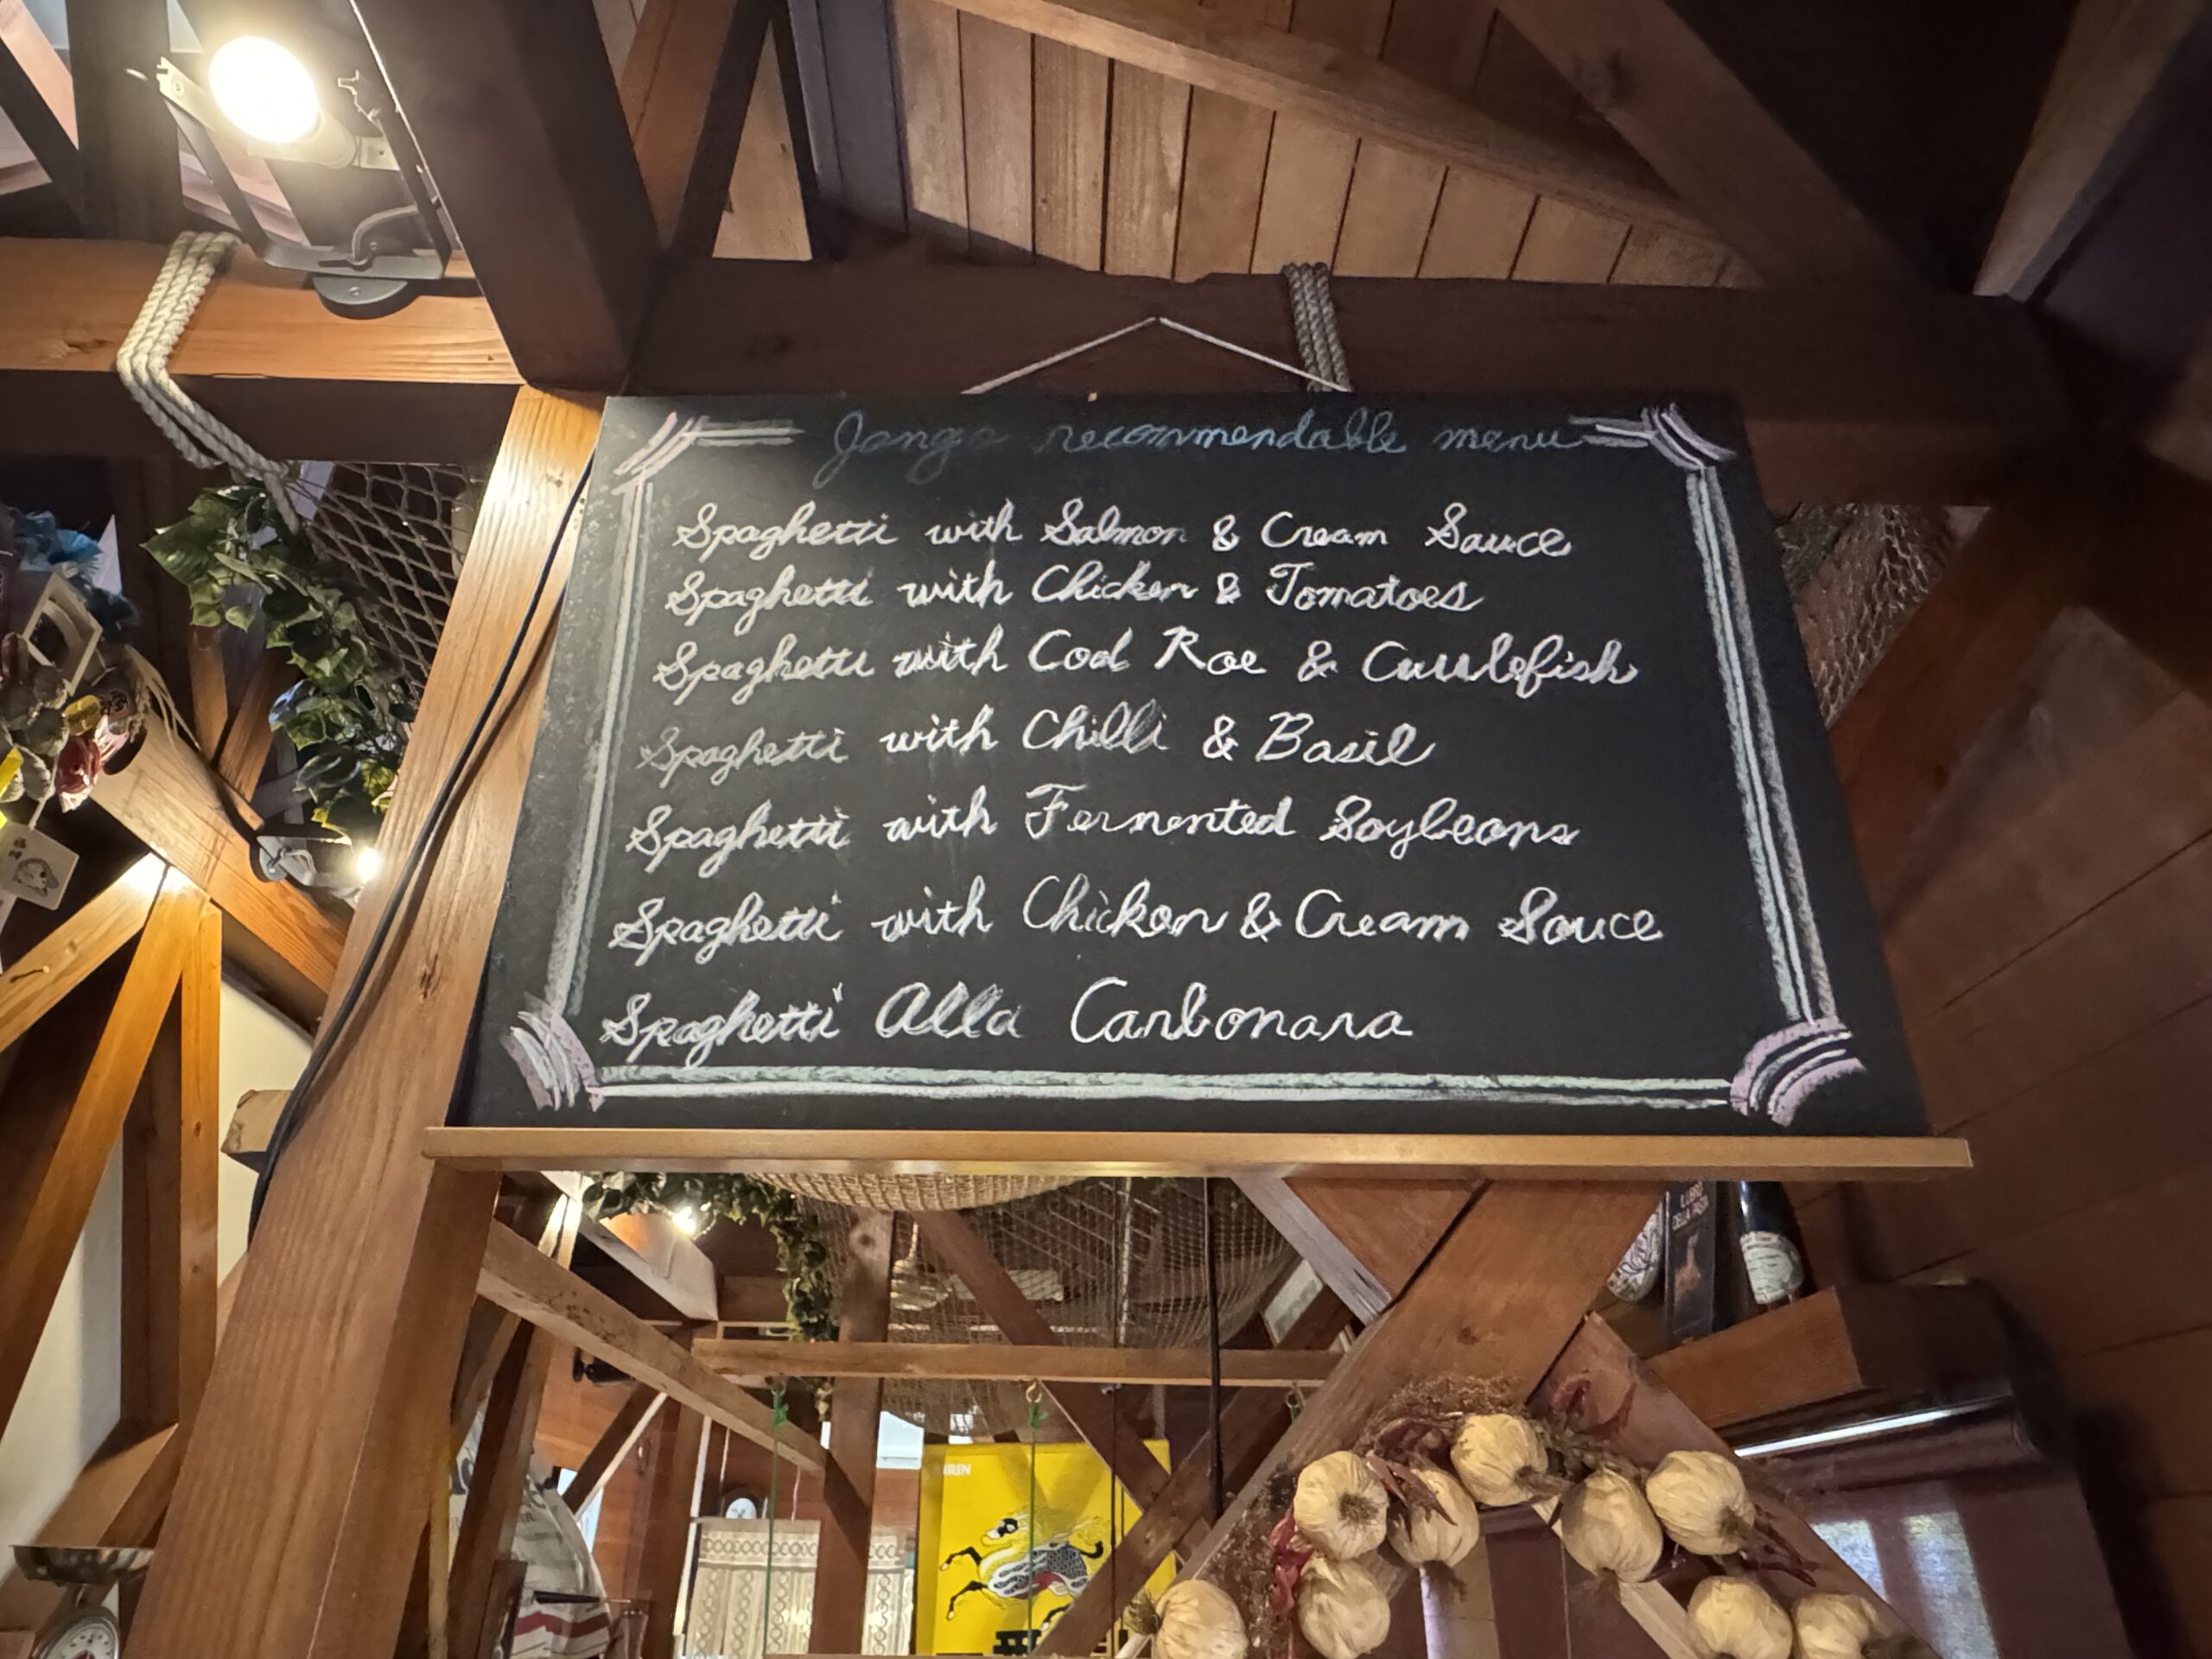 Jango recommendable menu
Spaghetti with Salmon & Cream Sauce
Spaghetti with Chicken & Tomatoes
Spaghetti with Cod Roe & Cuttlefish
Spaghetti with Chilli & Basil
Spaghetti with Fermented Soybeans
Spaghetti with Chicken & Cream Sauce
Spaghetti Alla Carbonara
DELLA PASTA
KIRIN